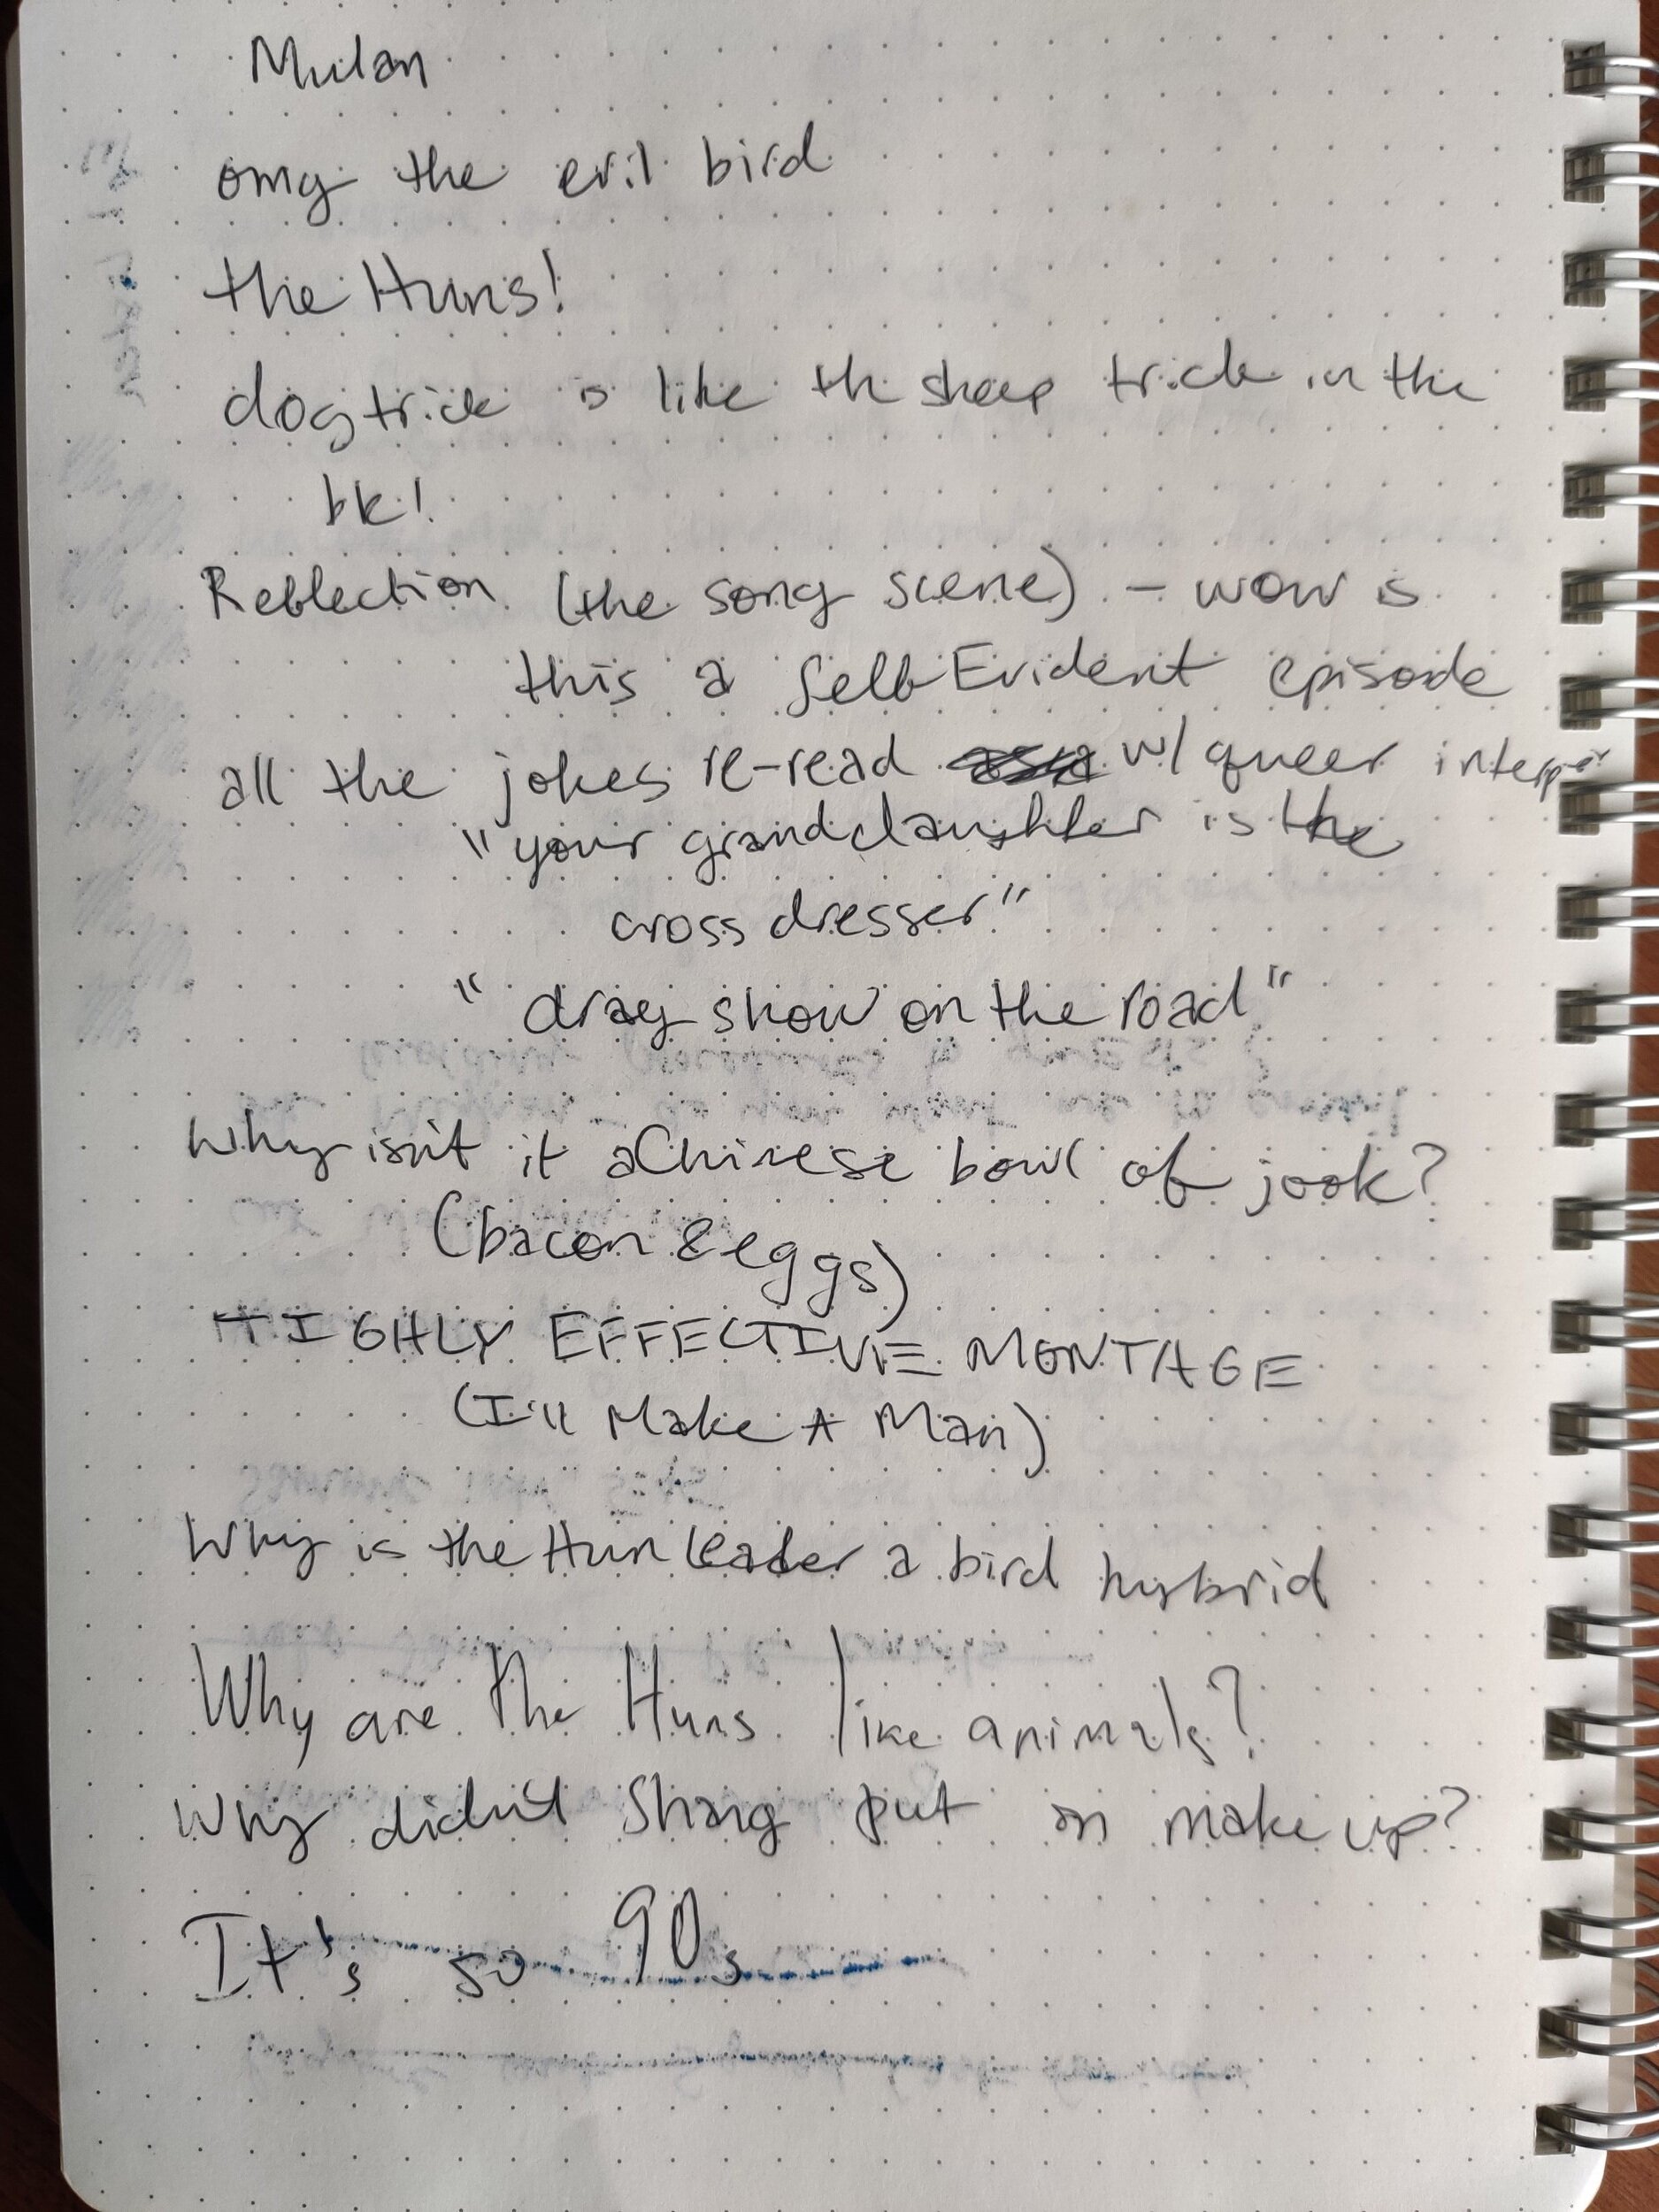 Mulan
omg the evil bird
the Huns!
dog trick is like th sheep trick in the
bk!
Reflection (the song scene) - wow is
this a Self Evident episode
all the jokes re-read w/ queer interp
"your granddaughter is the
cross dresser"
"drag show on the road"
Why isn't it a Chinese bowl of jook?
(bacon & eggs)
HIGHLY EFFECTIVE MONTAGE
(I'll Make A Man)
Why is the Hun leader a bird hybrid
Why are the Huns like animals?
Why didn't Shang put on make up?
It's so 90s